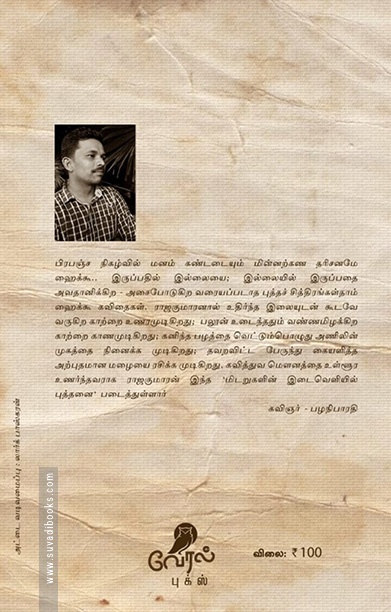 பிரபஞ்ச நிகழ்வில் மனம் கண்டடையும் மின்னற்கண தரிசனமே
ஹைக்கூ... இருப்பதில் இல்லையை; இல்லையில் இருப்பதை
அவதானிக்கிற - அசைபோடுகிற வரையப்படாத புத்தச் சித்திரங்கள்தாம்
ஹைக்கூ கவிதைகள். ராஜகுமாரனால் உதிர்ந்த இலையுடன் கூடவே
வருகிற காற்றை உணரமுடிகிறது; பலூன் உடைந்ததும் வண்ணமிழக்கிற
காற்றை காணமுடிகிறது; கனிந்த பழத்தை வெட்டும்பொழுது அணிலின்
முகத்தை நினைக்க முடிகிறது; தவறவிட்ட பேருந்து கையளித்த
அற்புதமான மழையை ரசிக்க முடிகிறது. கவித்துவ மௌனத்தை உள்ளூர
உணர்ந்தவராக ராஜகுமாரன் இந்த 'மிடறுகளின் இடைவெளியில்
புத்தனை' படைத்துள்ளார்
கவிஞர் - பழநிபாரதி
அட்டை வடிவமைப்பு : லார்க் பாஸ்கரன்
www.suvadibooks.com
வேரல்
புக்ஸ்
விலை: ₹ 100